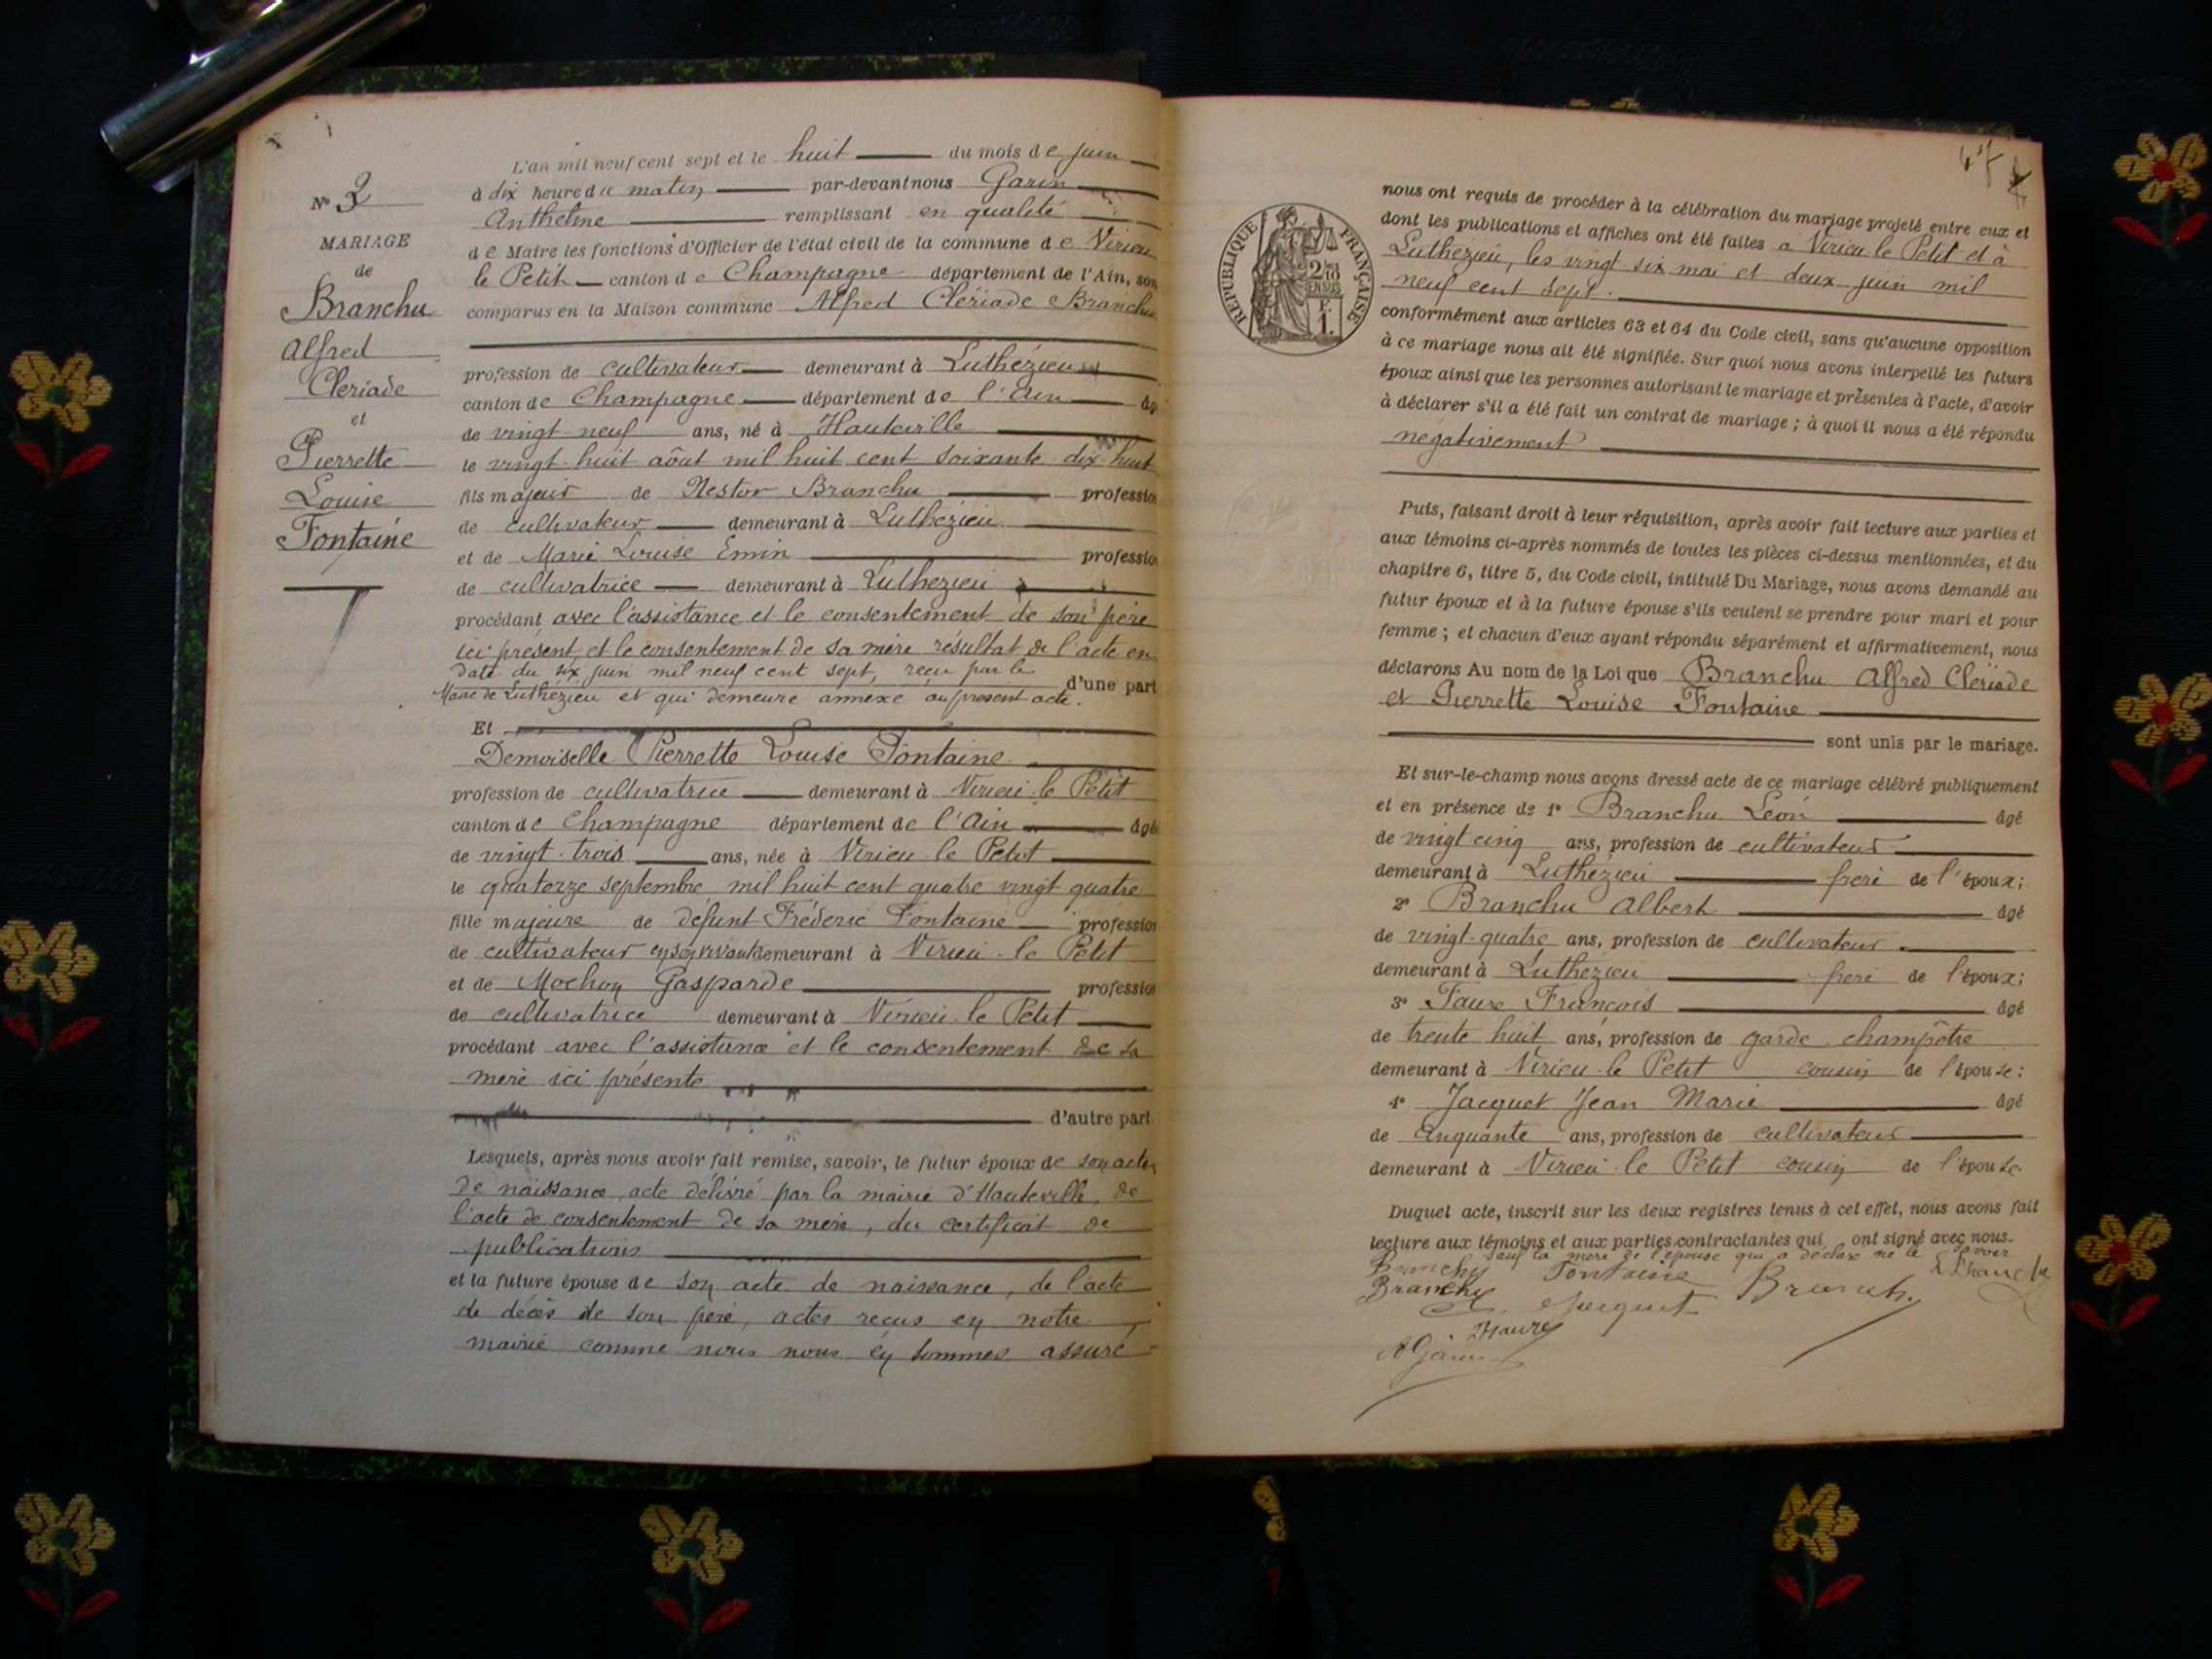 L'an mil neuf cent sept et le huit du mois de juin
à dix heure du matin par-devant nous Garin
Anthelme remplissant en qualité
de Maire les fonctions d'Officier de l'état civil de la commune de Virieu
le Petit canton de Champagne département de l'Ain, son
comparus en la Maison commune Alfred Clériade Branchu
profession de cultivateur demeurant à Luthézieu
canton de Champagne département de l'Ain âg
de vingt neuf ans, né à Hauteville
le vingt-huit aôut mil huit cent soixante dix-huit
fils majeur de Nestor Branchu profession
de cultivateur demeurant à Luthezieu
et de Marie Louise Emin profession
de cultivatrice demeurant à Luthezieu
procédant avec l'assistance et le consentement de son père
ici présent, et le consentement de sa mère résultat de l'acte en
date du six juin mil neuf cent sept, reçu par le
Maire de Luthézieu et qui demeure annexé au présent acte. d'une part
Et
Demoiselle Pierrette Louise Fontaine
profession de cultivatrice demeurant à Virieu-le Petit
canton de Champagne département de l'Ain âgé
de vingt-trois ans, née à Virieu le Petit
le quatorze septembre mil huit cent quatre vingt quatre
fille majeure de défunt Fréderic Fontaine profession
de cultivateur en son vivant demeurant à Virieu-le Petit
et de Mochon Gasparde profession
de cultivatrice demeurant à Virieu-le Petit
procédant avec l'assistance et le consentement de sa
mère ici présente
d'autre part
Lesquels, après nous avoir fait remise, savoir, le futur époux de son acte
de naissance, acte délivré par la mairie d'Hauteville, de
l'acte de consentement de sa mère, du certificat de
publications
et la future épouse de son acte de naissance, de l'acte
de décès de son père, actes reçus en notre
mairie comme nous nous en sommes assuré
N° 2
MARIAGE
de
Branchu
Alfred
Cleriade
et
Pierrette
Louise
Fontaine
RÉPUBLIQUE FRANÇAISE
2/10 EN SUS
F.
1.
nous ont requis de procéder à la célébration du mariage projeté entre eux et
dont les publications et affiches ont été faites à Virieu le Petit et à
Luthézieu, les vingt-six mai et deux juin mil
neuf cent sept.
conformément aux articles 63 et 64 du Code civil, sans qu'aucune opposition
à ce mariage nous ait été signifiée. Sur quoi nous avons interpellé les futurs
époux ainsi que les personnes autorisant le mariage et présentes à l'acte, d'avoir
à déclarer s'il a été fait un contrat de mariage ; à quoi il nous a été répondu
négativement
Puis, faisant droit à leur réquisition, après avoir fait lecture aux parties et
aux témoins ci-après nommés de toutes les pièces ci-dessus mentionnées, et du
chapitre 6, titre 5, du Code civil, intitulé Du Mariage, nous avons demandé au
futur époux et à la future épouse s'ils veulent se prendre pour mari et pour
femme ; et chacun d'eux ayant répondu séparément et affirmativement, nous
déclarons Au nom de la Loi que Branchu Alfred Clériade
et Pierrette Louise Fontaine
sont unis par le mariage.
Et sur-le-champ nous avons dressé acte de ce mariage célébré publiquement
et en présence de 1° Branchu Léon âgé
de vingt cinq ans, profession de cultivateur
demeurant à Luthézieu frère de l'époux;
2° Branchu Albert âgé
de vingt-quatre ans, profession de cultivateur
demeurant à Luthézieu frère de l'époux;
3° Faure François âgé
de trente huit ans, profession de garde champêtre
demeurant à Virieu-le Petit cousin de l'épouse;
4° Jacquet Jean Marie âgé
de cinquante ans, profession de cultivateur
demeurant à Virieu-le Petit cousin de l'épouse.
Duquel acte, inscrit sur les deux registres tenus à cet effet, nous avons fait
lecture aux témoins et aux parties contractantes qui ont signé avec nous.
sauf la mère de l'épouse qui a déclaré ne le savoir
Branchu Fontaine Branchu
Branchu Jacquet
Faure
A Garin